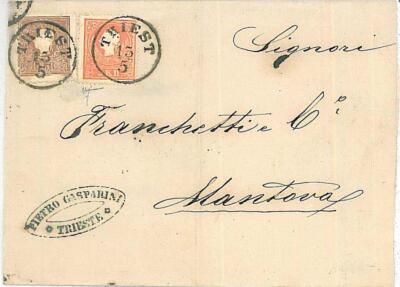 TRIEST
13
5
TRIEST
13
5
Signori
Franchetti e C.º
Mantova
PIETRO GASPARINI
TRIESTE